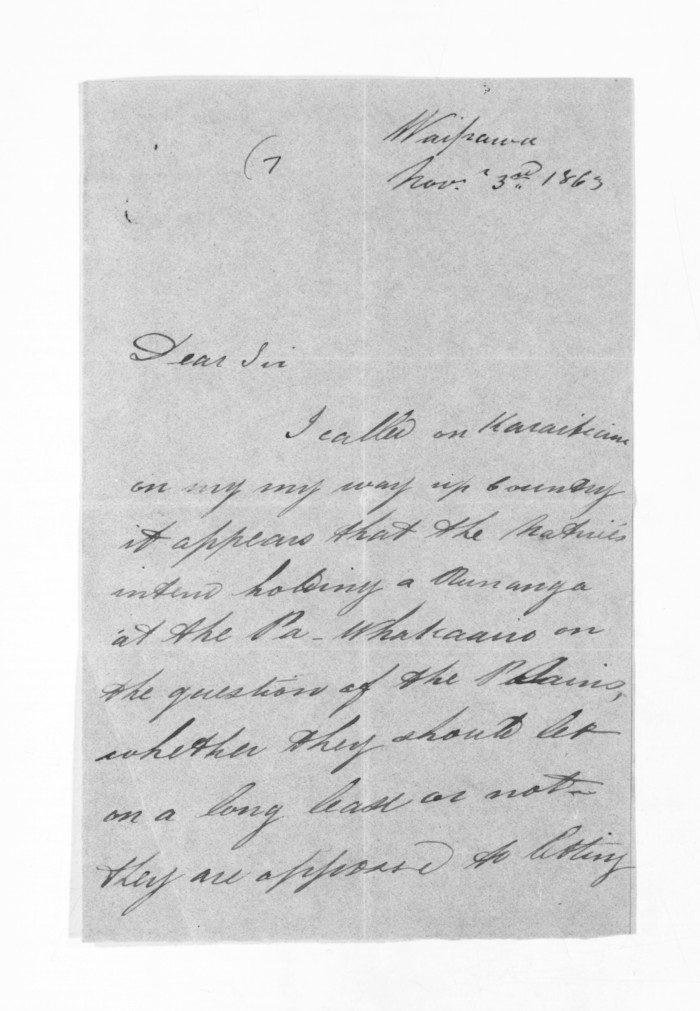 (7
Waipawa
Nov. 3rd 1863
Dear Sir
I called on Karaitiana
on my my way up Country
it appears that the Natives
intend holding a Runanga
at the Pa-Whakaairo on
the question of the Plains,
whether they should let
on a long lease or not-
they are opposed to letting